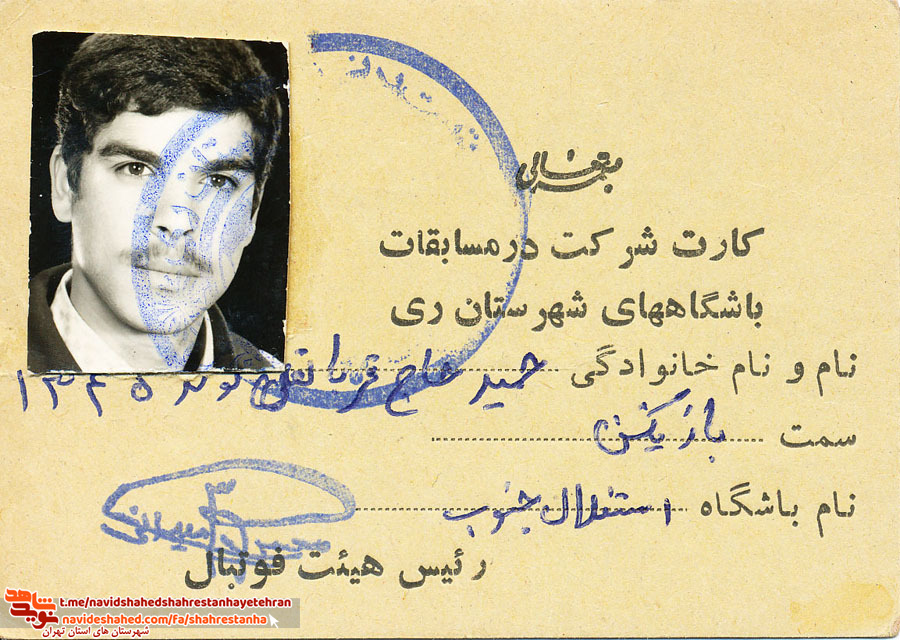 بسمه تعالی
کارت شرکت در مسابقات
باشگاههای شهرستان ری
نام و نام خانوادگی حمید حاج قربانعلی تولد ۱۳۴۵
سمت بازیکن
نام باشگاه استقلال جنوب
رئیس هیئت فوتبال
نوید شاهد
t.me/navidshahedshahrestanhayetehran
navideshahed.com/fa/shahrestanha
شهرستان های استان تهران